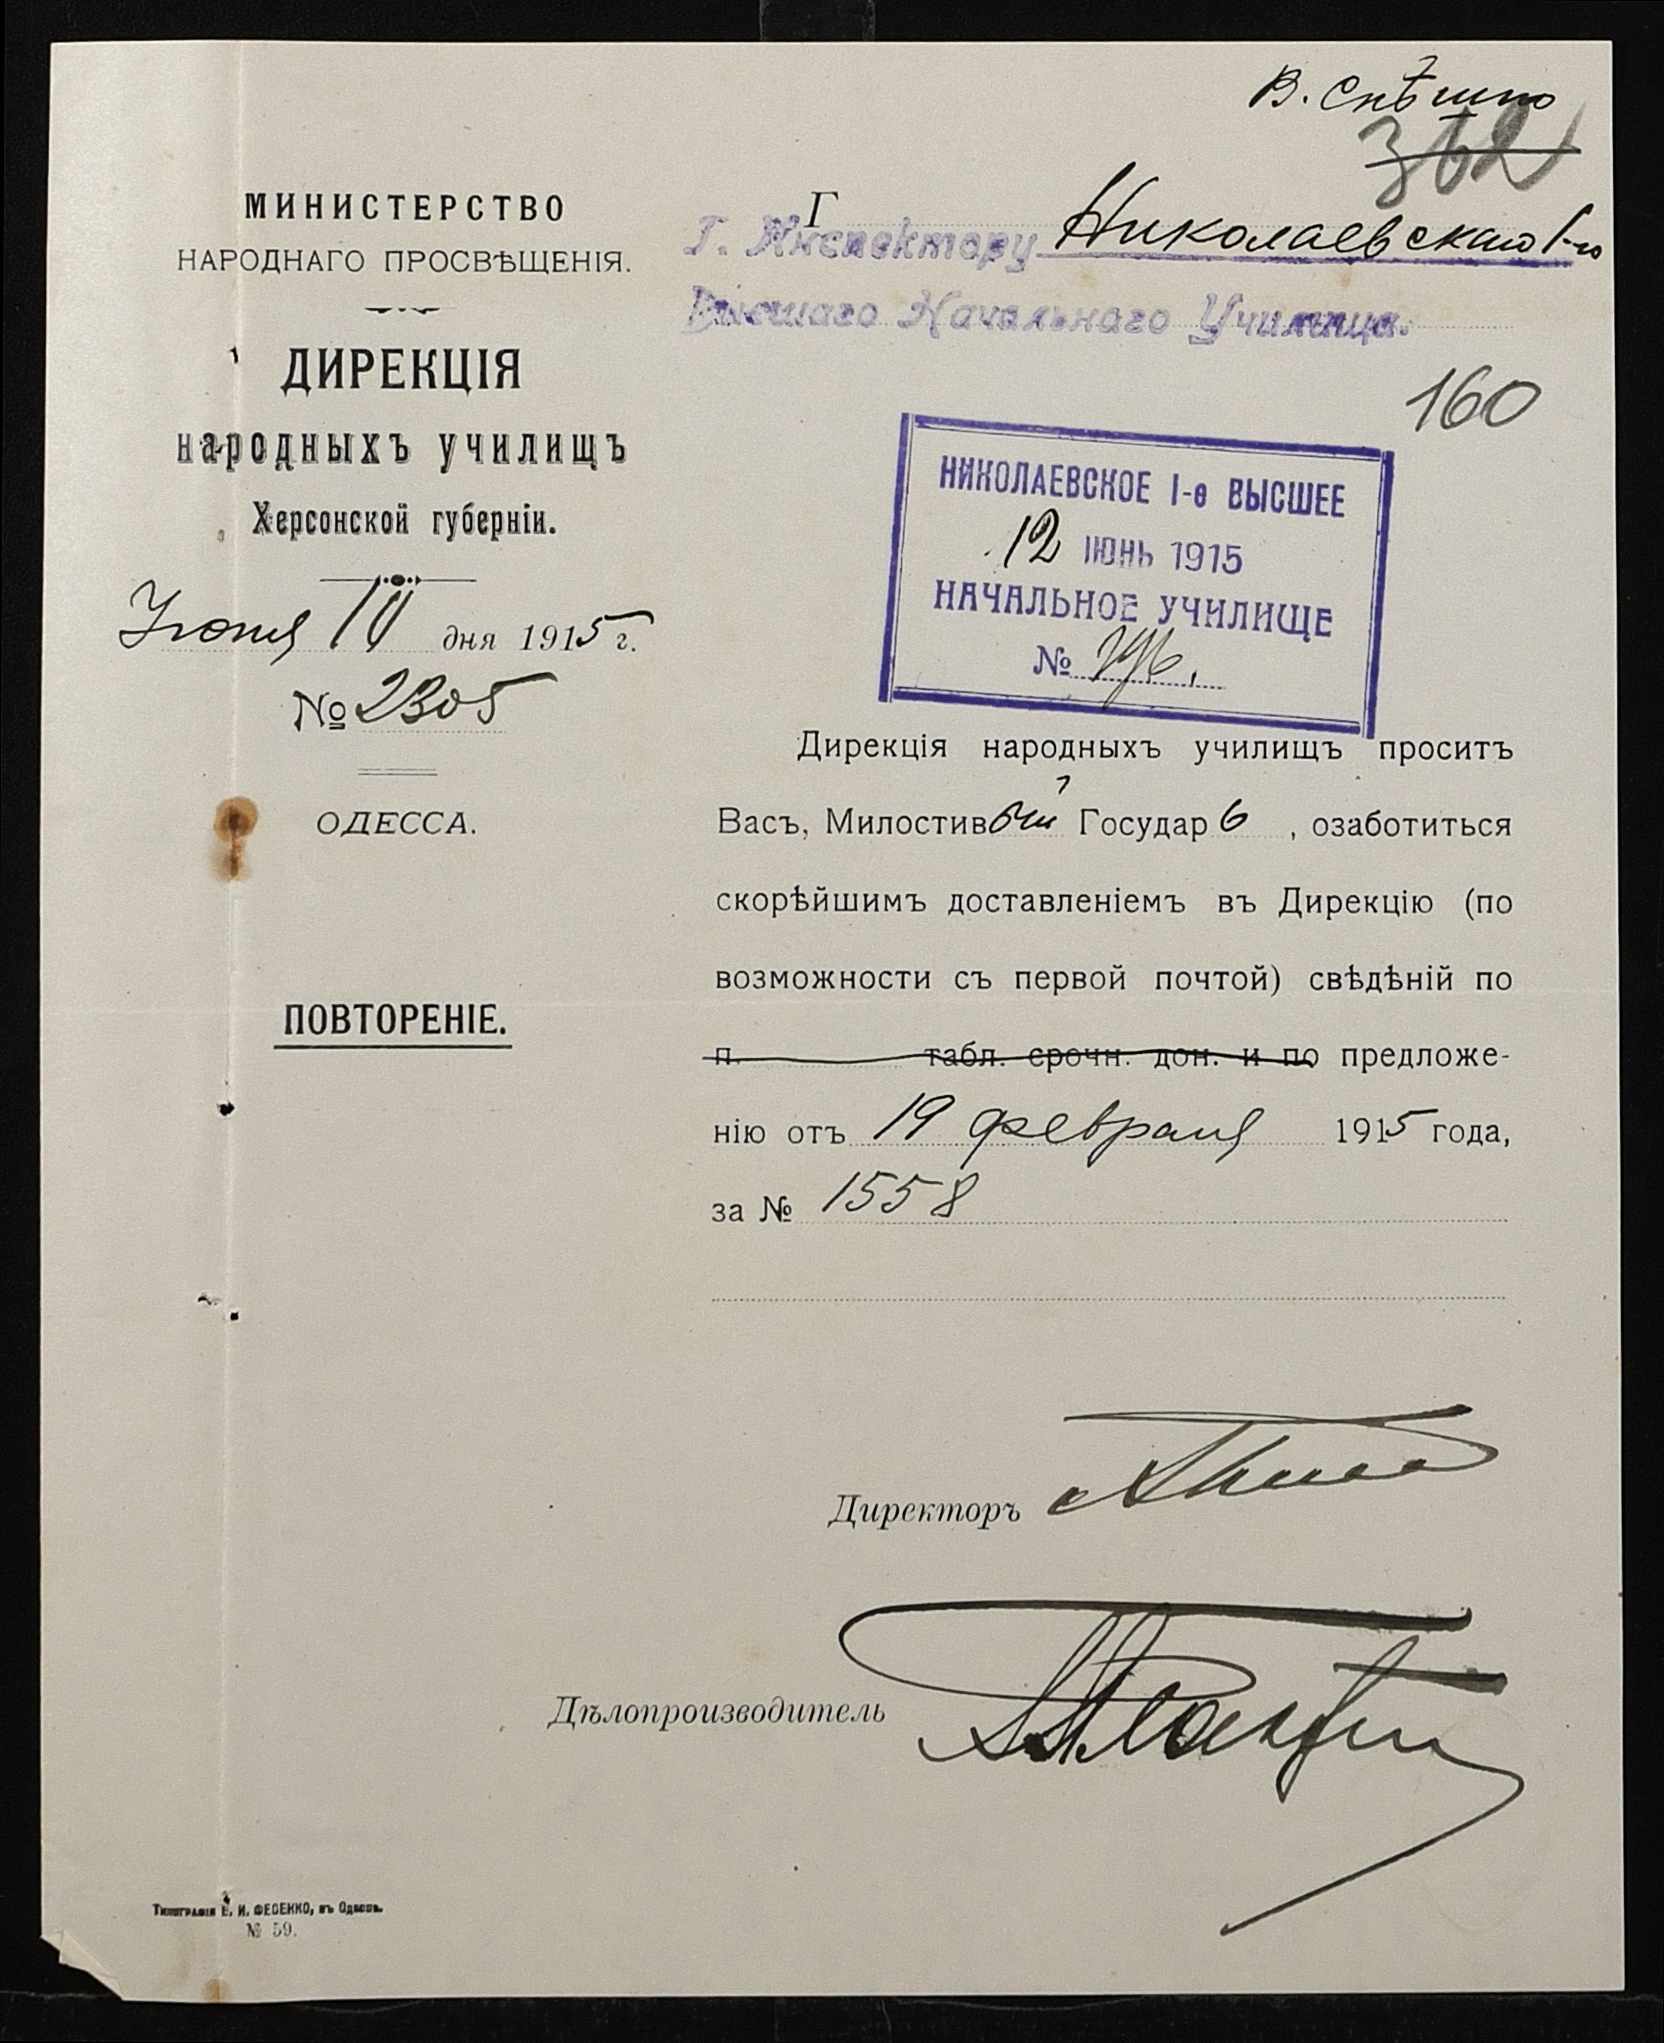 В. Спѣшно
МИНИСТЕРСТВО
НАРОДНАГО ПРОСВѢЩЕНІЯ.
ДИРЕКЦІЯ
народныхъ училищъ
Херсонской губерніи.
Іюня 10 дня 1915 г.
№ 2305
ОДЕССА.
ПОВТОРЕНІЕ.
Г
Г. Инспектору Николаевскаго 1-го
Высшаго Начальнаго Училища.
160
НИКОЛАЕВСКОЕ 1-е ВЫСШЕЕ
12 ІЮНЬ 1915
НАЧАЛЬНОЕ УЧИЛИЩЕ
№
Дирекція народныхъ училищъ проситъ
Васъ, Милостивый Государь, озаботиться
скорѣйшимъ доставленіемъ въ Дирекцію (по
возможности съ первой почтой) свѣдѣній по
п. табл. срочн. дон. и по предложе-
нію отъ 19 февраля 1915 года,
за № 1558
Директоръ
Дѣлопроизводитель
Типографія Е. И. ФЕСЕНКО, въ Одессѣ.
№ 59.